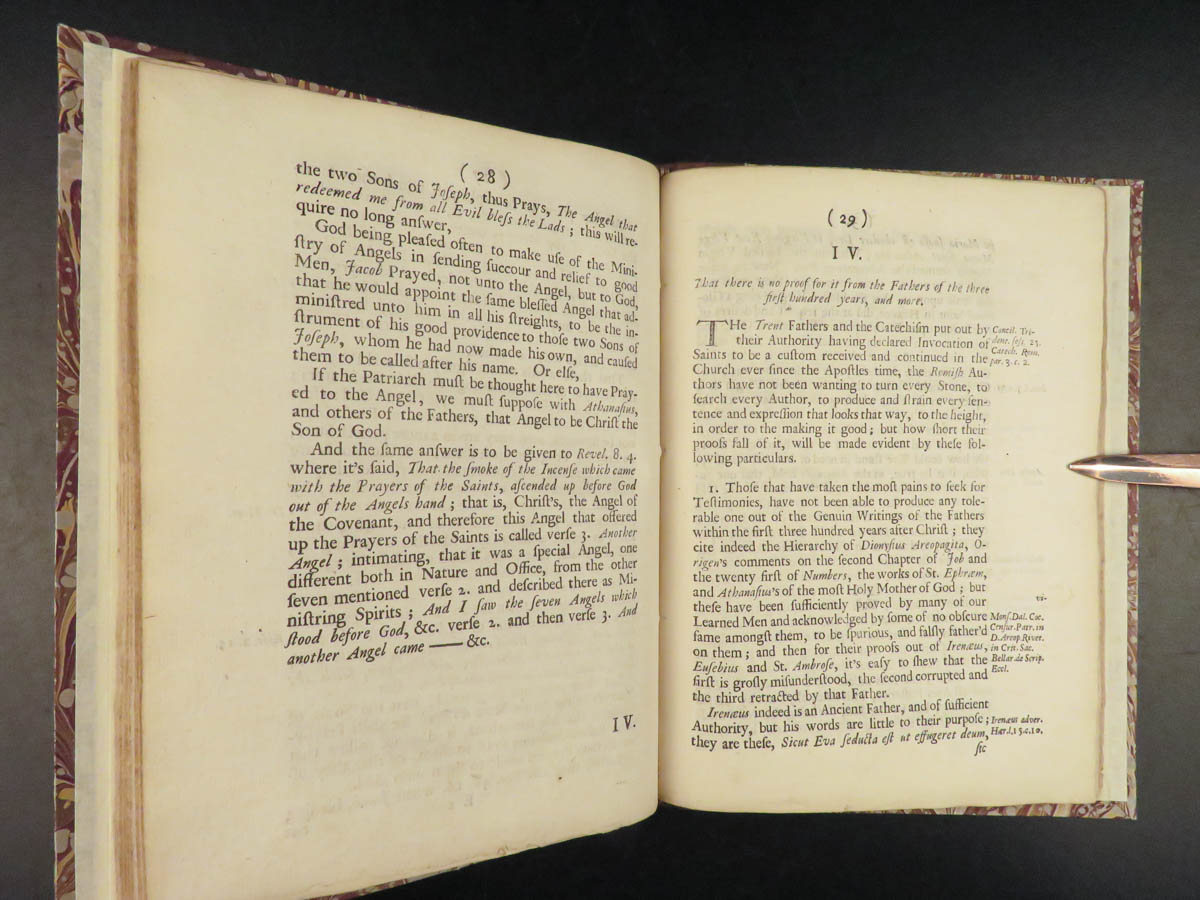 ( 28 )
the two Sons of Joſeph, thus Prays, The Angel that
redeemed me from all Evil bleſs the Lads ; this will re-
quire no long anſwer,
God being pleaſed often to make uſe of the Mini-
ſtry of Angels in ſending ſuccour and relief to good
Men, Jacob Prayed, not unto the Angel, but to God,
that he would appoint the ſame bleſſed Angel that ad-
miniſtred unto him in all his ſtreights, to be the in-
ſtrument of his good providence to thoſe two Sons of
Joſeph, whom he had now made his own, and cauſed
them to be called after his name. Or elſe,
If the Patriarch muſt be thought here to have Pray-
ed to the Angel, we muſt ſuppoſe with Athanaſius,
and others of the Fathers, that Angel to be Chriſt the
Son of God.
And the ſame anſwer is to be given to Revel. 8. 4.
where it's ſaid, That the ſmoke of the Incenſe which came
with the Prayers of the Saints, aſcended up before God
out of the Angels hand ; that is, Chriſt's, the Angel of
the Covenant, and therefore this Angel that offered
up the Prayers of the Saints is called verſe 3. Another
Angel ; intimating, that it was a ſpecial Angel, one
different both in Nature and Office, from the other
ſeven mentioned verſe 2. and deſcribed there as Mi-
niſtring Spirits ; And I ſaw the ſeven Angels which
ſtood before God, &c. verſe 2. and then verſe 3. And
another Angel came —— &c.
IV.
( 29 )
IV.
That there is no proof for it from the Fathers of the three
firſt hundred years, and more.
THe Trent Fathers and the Catechiſm put out by
their Authority having declared Invocation of
Saints to be a cuſtom received and continued in the
Church ever ſince the Apoſtles time, the Romiſh Au-
thors have not been wanting to turn every Stone, to
ſearch every Author, to produce and ſtrain every ſen-
tence and expreſſion that looks that way, to the height,
in order to the making it good ; but how ſhort their
proofs fall of it, will be made evident by theſe fol-
lowing particulars.
Concil. Tri-
dent. ſeſſ. 25.
Catech. Rom.
par. 3. c. 2.
1. Thoſe that have taken the moſt pains to ſeek for
Teſtimonies, have not been able to produce any tole-
rable one out of the Genuin Writings of the Fathers
within the firſt three hundred years after Chriſt ; they
cite indeed the Hierarchy of Dionyſius Areopagita, O-
rigen's comments on the ſecond Chapter of Job and
the twenty firſt of Numbers, the works of St. Ephræm,
and Athanaſius's of the moſt Holy Mother of God ; but
theſe have been ſufficiently proved by many of our
Learned Men and acknowledged by ſome of no obſcure
fame amongſt them, to be ſpurious, and falſly father'd
on them ; and then for their proofs out of Irenæus,
Euſebius and St. Ambroſe, it's eaſy to ſhew that the
firſt is groſly miſunderſtood, the ſecond corrupted and
the third retracted by that Father.
vi-
Monſ. Dal. Coc.
Cenſur. Patr. in
D. Areop. Rivet.
in Crit. Sac.
Bellar. de Scrip.
Eccl.
Irenæus indeed is an Ancient Father, and of ſufficient
Authority, but his words are little to their purpoſe ;
they are theſe, Sicut Eva ſeducta eſt ut effugeret deum,
Irenæus adver.
Hær. l. 5. c. 19.
ſic